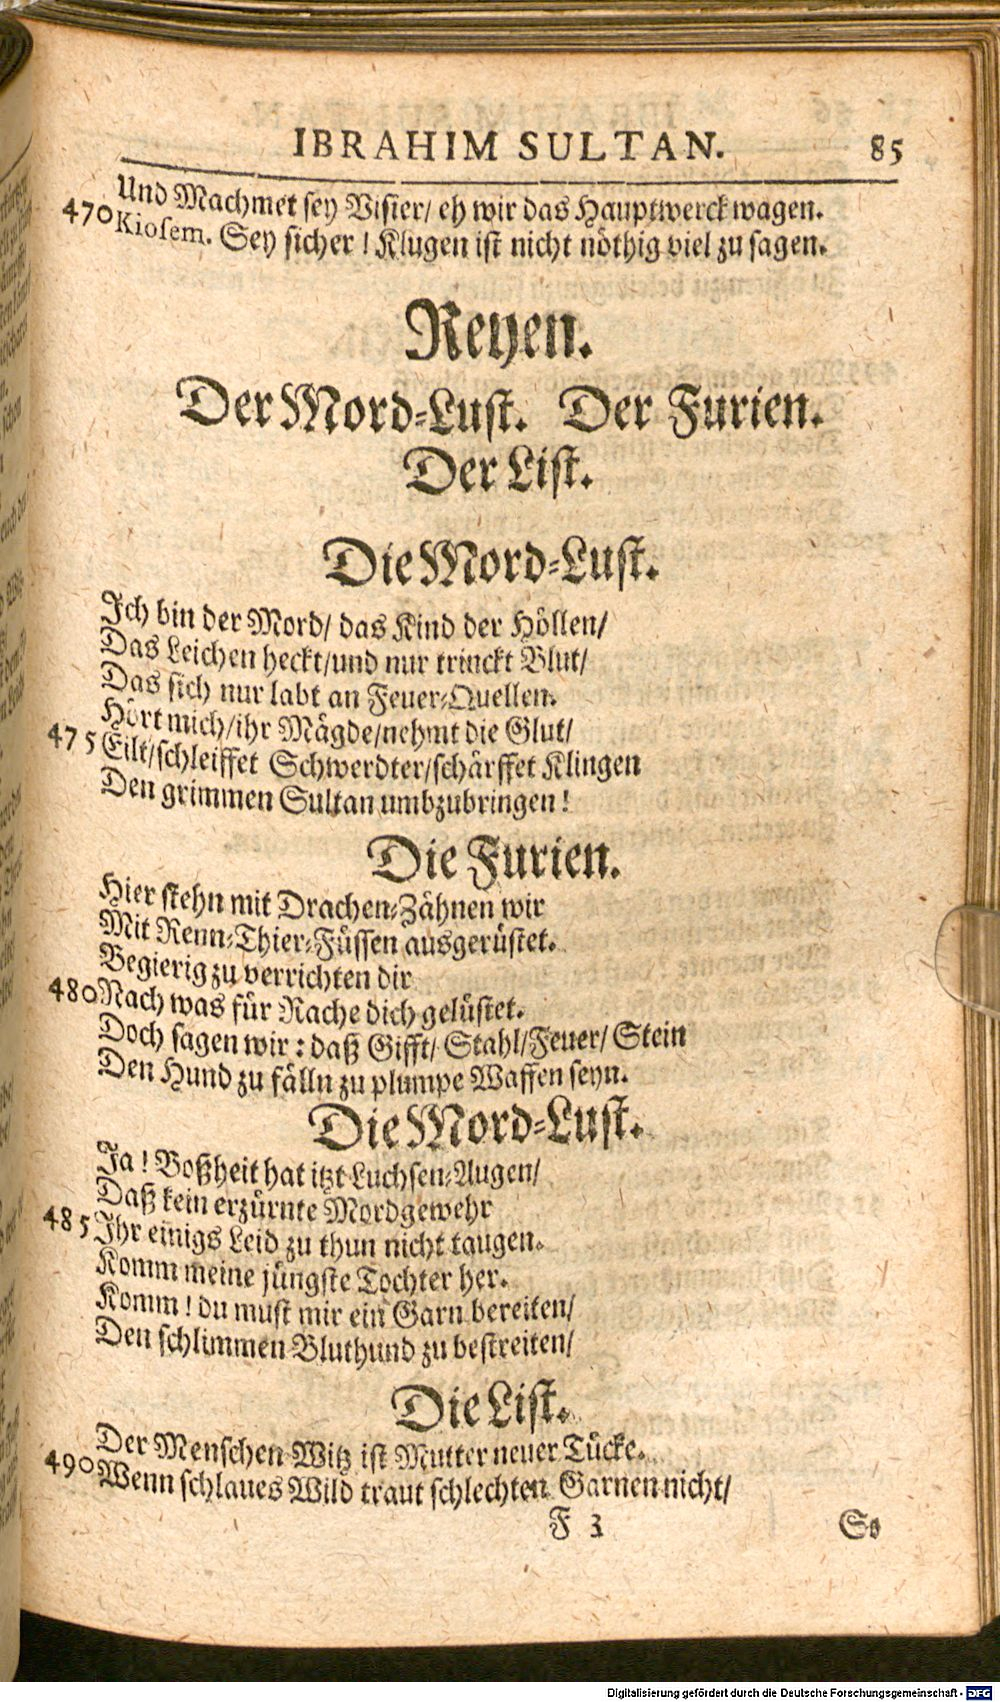 IBRAHIM SULTAN. 85
Und Machmet sey Visier/ eh wir das Hauptwerck wagen.
470 Kiosem. Sey sicher! Klugen ist nicht nöthig viel zu sagen.
Reyen.
Der Mord-Lust. Der Furien.
Der List.
Die Mord-Lust.
Ich bin der Mord/ das Kind der Höllen/
Das Leichen heckt/ und nur trinckt Blut/
Das sich nur labt an Feuer-Quellen.
Hört mich/ ihr Mägde/ nehmt die Glut/
475 Eilt/ schleiffet Schwerdter/ schärffet Klingen
Den grimmen Sultan umbzubringen!
Die Furien.
Hier stehn mit Drachen-Zähnen wir
Mit Renn-Thier-Füssen ausgerüstet.
Begierig zu verrichten dir
480 Nach was für Rache dich gelüstet.
Doch sagen wir: daß Gifft/ Stahl/ Feuer/ Stein
Den Hund zu fälln zu plumpe Waffen seyn.
Die Mord-Lust.
Ja! Boßheit hat itzt Luchsen-Augen/
Daß kein erzürnte Mordgewehr
485 Ihr einigs Leid zu thun nicht taugen.
Komm meine jüngste Tochter her.
Komm! du must mir ein Garn bereiten/
Den schlimmen Bluthund zu bestreiten/
Die List.
Der Menschen Witz ist Mutter neuer Tücke.
490 Wenn schlaues Wild traut schlechten Garnen nicht/
F 3 So
Digitalisierung gefördert durch die Deutsche Forschungsgemeinschaft - DFG